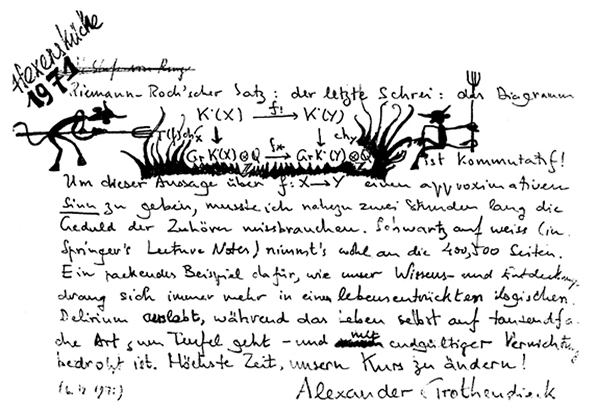 Hexenküche
1971
Riemann-Roch'scher Satz: der letzte Schrei: das Diagramm
K·(X) f! K·(Y)
T(f)chX chY
Gr K·(X)⊗Q f* Gr K·(Y)⊗Q
Z Z
ist kommutatif!
Um dieser Aussage über f: X→Y einen approximativen
Sinn zu geben, musste ich nahezu zwei Stunden lang die
Geduld der Zuhörer missbrauchen. Schwartz auf weiss (in
Springer's Lecture Notes) nimmt's wohl an die 400, 500 Seiten.
Ein packendes Beispiel dafür, wie unser Wissens- und Entdeckungs-
drang sich immer mehr in einem lebensentrückten logischen
Delirium auslebt, während das Leben selbst auf tausendfa-
che Art zum Teufel geht - und mit endgültiger Vernichtung
bedroht ist. Höchste Zeit, unsern Kurs zu ändern!
Alexander Grothendieck